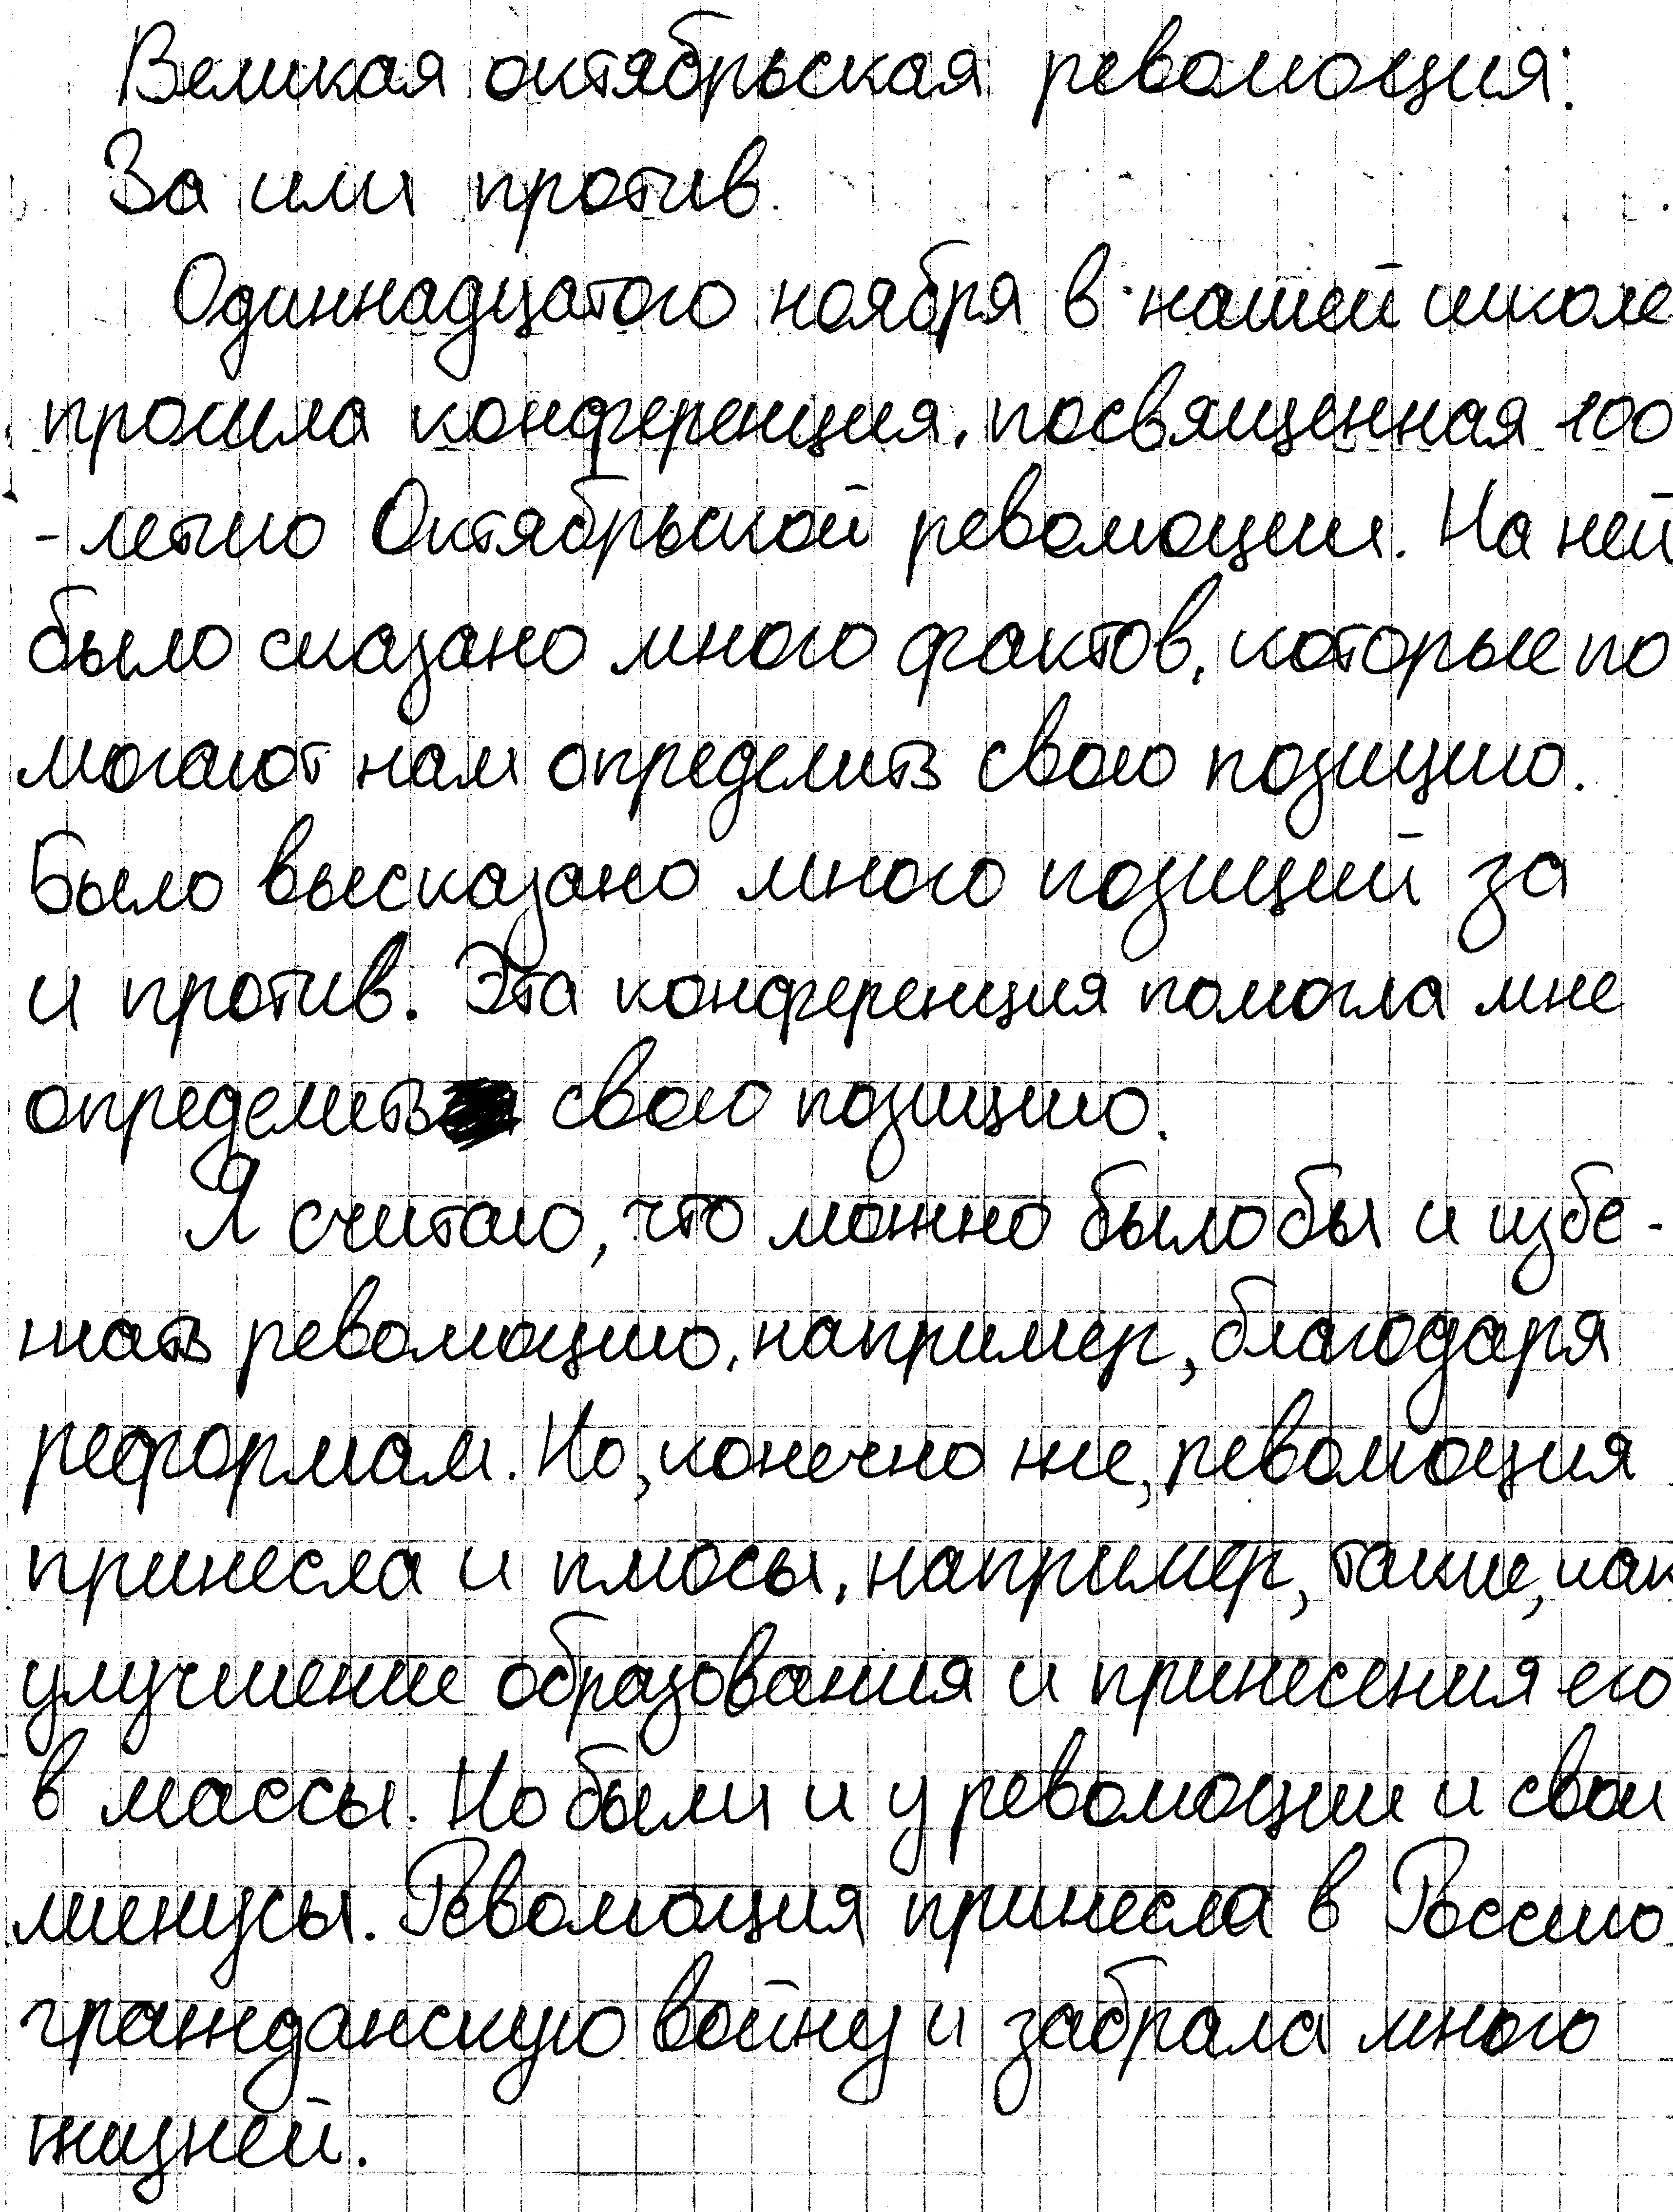 Великая октябрьская революция:
За или против.
Одиннадцатого ноября в нашей школе
прошла конференция, посвященная 100
-летию Октябрьской революции. На ней
было сказано много фактов, которые по
могают нам определить свою позицию.
Было высказано много позиций за
и против. Эта конференция помогла мне
определить свою позицию.
Я считаю, что можно было бы и избе-
жать революцию, например, благодаря
реформам. Но, конечно же, революция
принесла и плюсы, например, такие, как
улучшение образования и принесения его
в массы. Но были и у революции и свои
минусы. Революция принесла в Россию
гражданскую войну и забрала много
жизней.